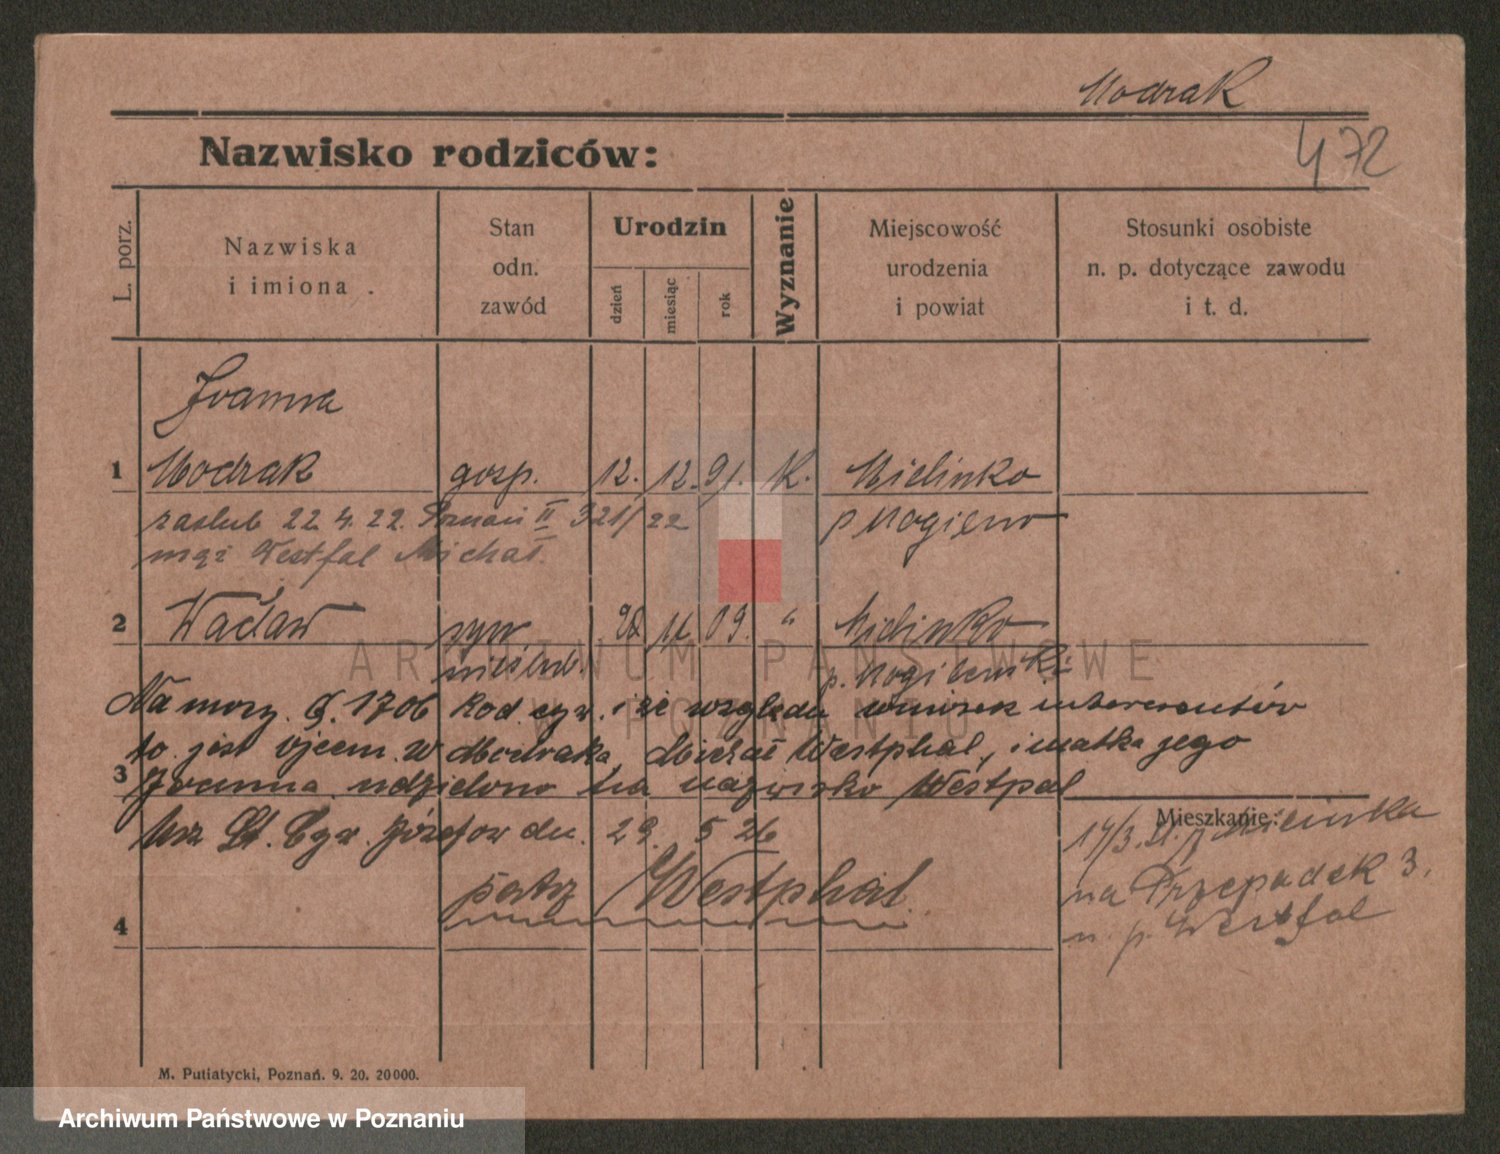 Modrak
472
Nazwisko rodziców:
L. porz.
Nazwiska
i imiona.
Stan
odn.
zawód
Urodzin
dzień
miesiąc
rok
Wyznanie
Miejscowość
urodzenia
i powiat
Stosunki osobiste
n. p. dotyczące zawodu
i t. d.
Joanna
1 Modrak gosp. 12. 12. 91. K. Mielinko
zaslub 22 4. 22. Poznań II 321/22 p Mogilno
mąż Westfal Michał.
2 Wacław syn 11 09. " Mielinko
nieślub. p.
Na mocy § 1706 kod cyw. i ze względu wniosek interesentów
to jest ojcem W Modraka, Michał Westphal, i matka jego
3 Joanna udzielono na nazwisko Westpal
Urz St. Cyw. Józefow dn. 29. 5 26
Mieszkanie:
17/3. 21. z Mielinka
patrz Westphal
na Przepadek 3.
n. p. Westfal
4
M. Putiatycki, Poznań. 9. 20. 20000.
ARCHIWUM PAŃSTWOWE
W POZNANIU
Archiwum Państwowe w Poznaniu